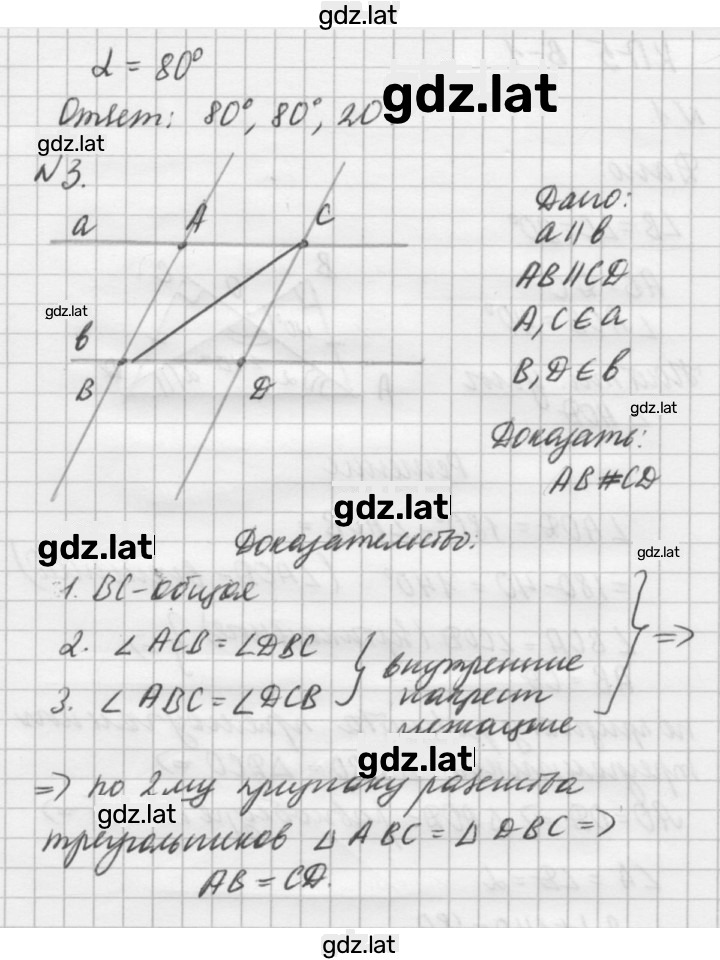 gdz.lat
α = 80°
Ответ: 80°, 80°, 20
gdz.lat
gdz.lat
№3.
a
A
C
Дано:
a || в
AB || CD
A, C ∈ a
B, D ∈ в
gdz.lat
в
B
D
gdz.lat
Доказать:
AB # CD
gdz.lat
gdz.lat
Доказательство:
gdz.lat
1. BC - общая
2. ∠ ACB = ∠DBC
3. ∠ ABC = ∠DCB
} внутренние
накрест
лежащие
} =>
gdz.lat
=> по 2му признаку равенства
gdz.lat
треугольников △ ABC = △ DBC =>
AB = CD.
gdz.lat